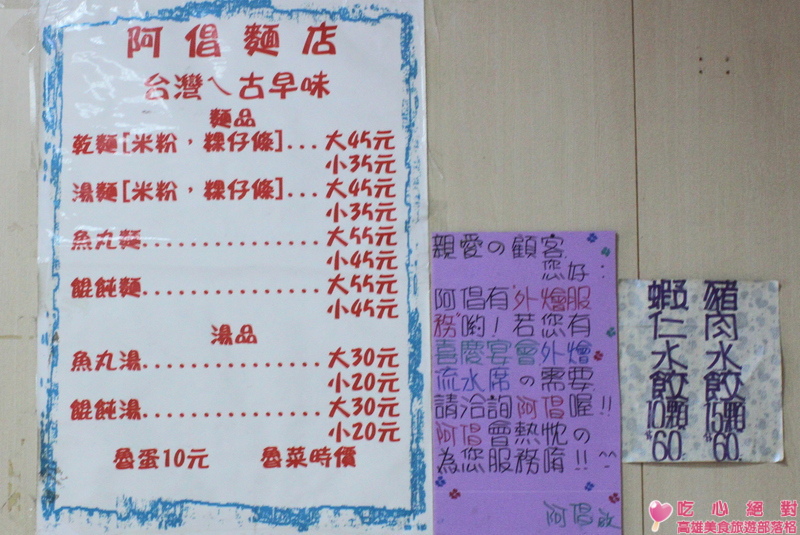 阿倡麵店
台灣ㄟ古早味
麵品
乾麵[米粉，粿仔條]...大45元
小35元
湯麵[米粉，粿仔條]...大45元
小35元
魚丸麵...............大55元
小45元
餛飩麵...............大55元
小45元
湯品
魚丸湯...............大30元
小20元
餛飩湯...............大30元
小20元
魯蛋10元 魯菜時價
親愛の顧客
您好：
阿倡有"外燴服
務"喲！若您有
喜慶宴會外燴
流水席の需要
請洽詢阿倡喔!!
阿倡會熱忱の
為您服務唷!!^^
阿倡 啟
豬肉水餃15顆$60.
蝦仁水餃10顆$60.
吃心絕對
高雄美食旅遊部落格